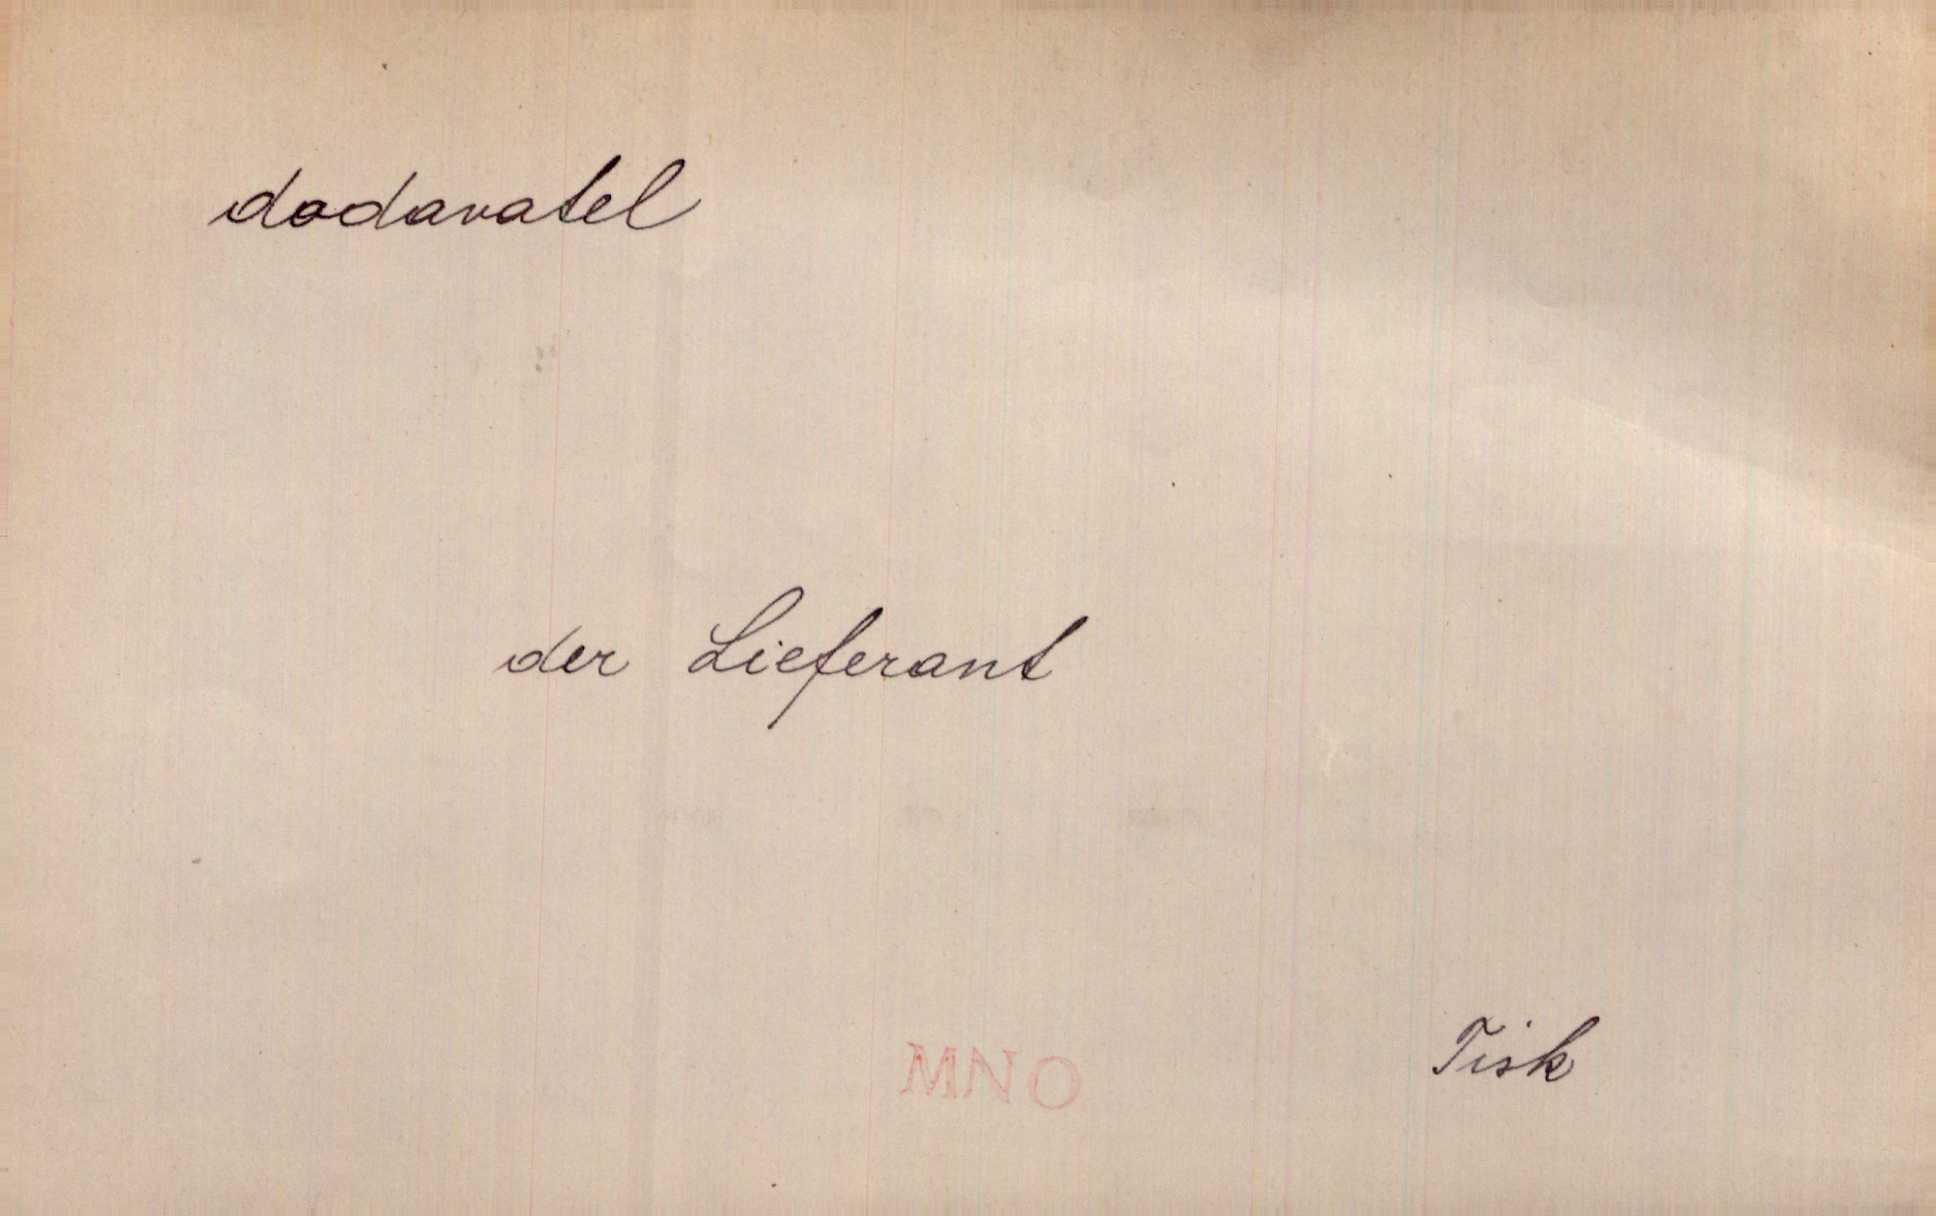 dodavatel
der Lieferant
Tisk
MNO